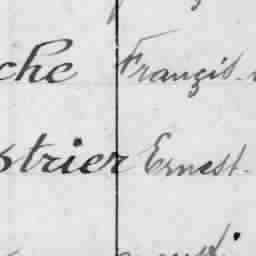 che Francis
strier Ernest